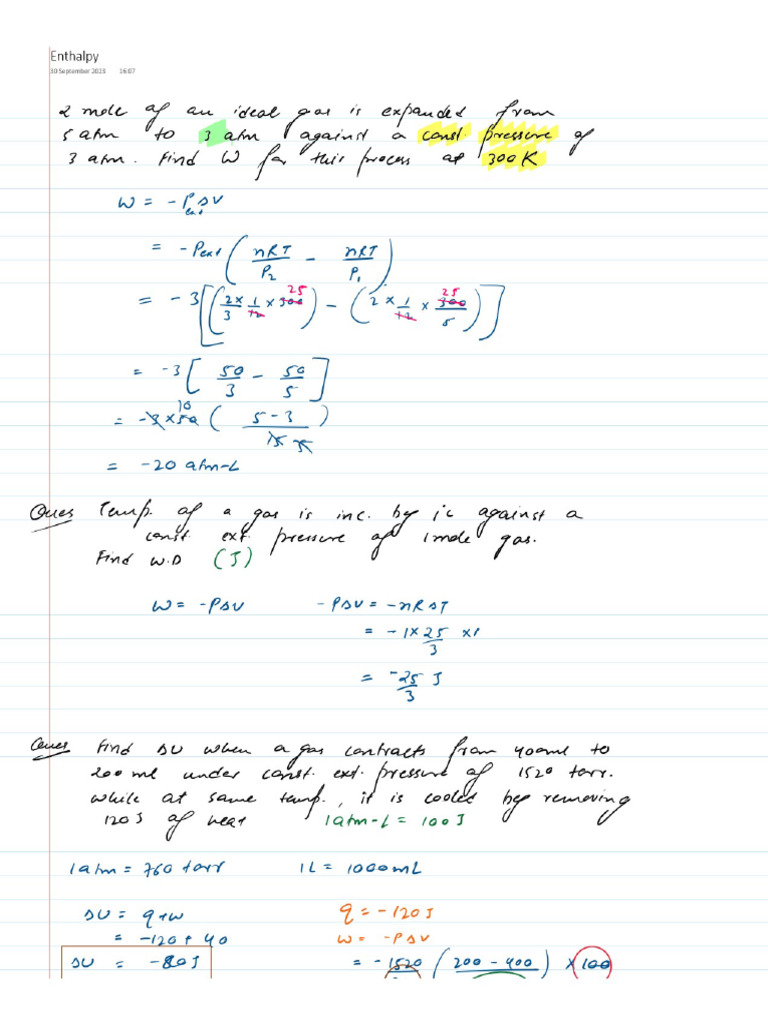 Enthalpy
10 September 2023 16:07
2 mole of an ideal gas is expanded from
5 atm to 3 atm against a const. pressure of
3 atm. Find W for this process at 300K
W = -Pext ΔV
= -Pext ( nRT/P2 - nRT/P1 )
= -3 [ ( 2/3 × 1/12 × 300 25 ) - ( 2 × 1/12 × 300/5 25 ) ]
= -3 [ 50/3 - 50/5 ]
= -3 × 50 10 ( 5-3 / 15 )
= -20 atm-L
Ques Temp. of a gas is inc. by 1c against a
const. ext. pressure of 1mole gas.
Find W.D (J)
W = -PΔV -PΔV = -nRΔT
= -1 × 25/3 × 1
= -25/3 J
Ques Find ΔU when a gas contracts from 400ml to
200 ml under const. ext. pressure of 1520 torr.
while at same temp., it is cooled by removing
120J of heat 1atm-L = 100J
1atm = 760 torr 1L = 1000mL
ΔU = q+w q = -120J
= -120 + 40 W = -PΔV
ΔU = -80J = -1520 ( 200 - 400 ) × 100